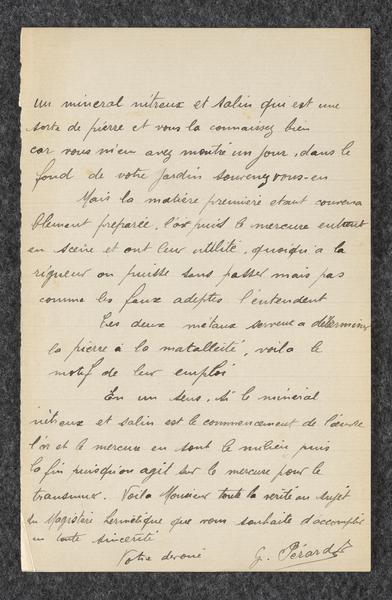 un minéral nitreux et salin qui est une
sorte de pierre et vous la connaissez bien
car vous m'en avez montré un jour, dans le
fond de votre jardin souvenez vous-en
Mais la matière première étant convena
blement préparée, l'or puis le mercure entrent
en scène et ont leur utilité, quoiqu'à la
rigueur on puisse s'en passer mais pas
comme les faux adeptes l'entendent
Les deux métaux servent à déterminer
la pierre à la metalléité, voila le
motif de leur emploi
En un sens, si le minéral
nitreux et salin est le commencement de l'œuvre
l'or et le mercure en sont le milieu puis
la fin puisqu'on agit sur le mercure pour le
transmuer. Voila Monsieur toute la vérité au sujet
du Magistère hermétique que vous souhaite d'accomplir
en toute sincérité
Votre dévoué G. Pérard